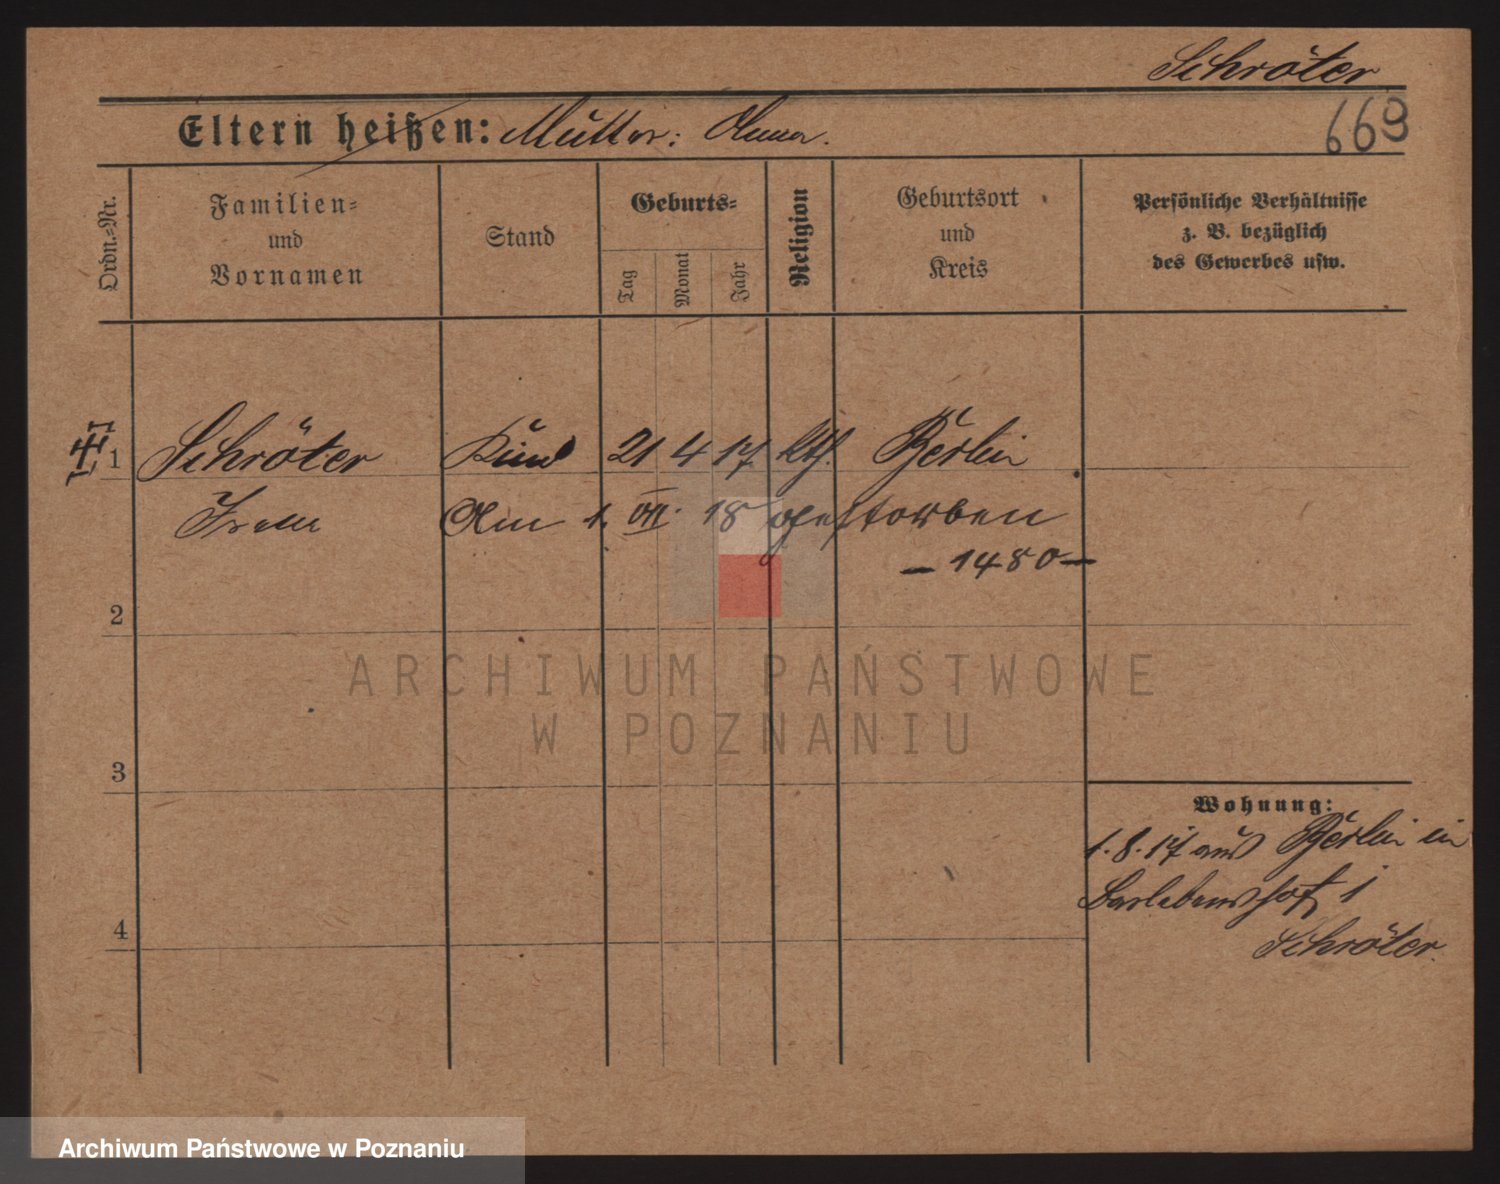 Schröter
Eltern heißen: Mutter: Anna.
669
Ordn.-Nr.
Familien=
und
Vornamen
Stand
Geburts=
Tag
Monat
Jahr
Religion
Geburtsort
und
Kreis
Persönliche Verhältnisse
z. B. bezüglich
des Gewerbes usw.
1 Schröter Kind 21 4 17 kth. Berlin
Irene Am 1. VII. 18 gestorben
– 1480 –
2
ARCHIWUM PAŃSTWOWE
W POZNANIU
3
Wohnung:
1.8.17 aus Berlin in
Barlebenshof 1
Schröter.
4
Archiwum Państwowe w Poznaniu